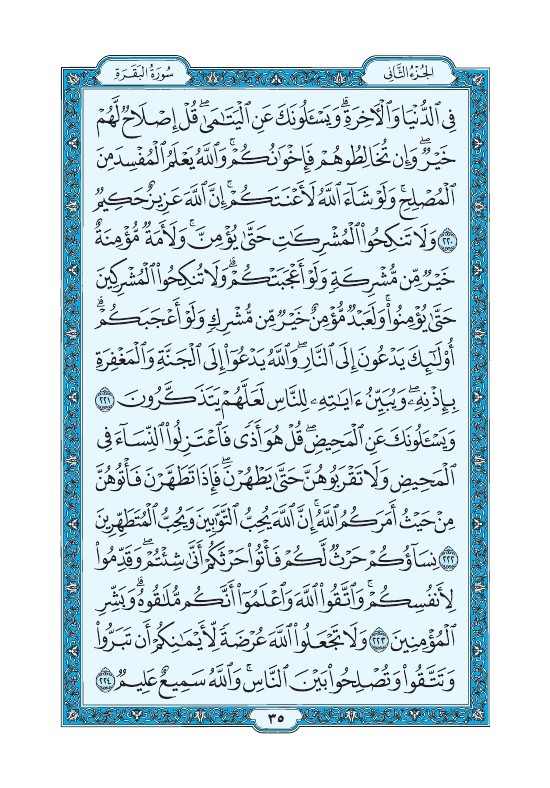 الجُزْءُ الثَّانِي
سُورَةُ البَقَرَةِ
فِي ٱلدُّنۡيَا وَٱلۡأٓخِرَةِۗ وَيَسۡـَٔلُونَكَ عَنِ ٱلۡيَتَٰمَىٰۖ قُلۡ إِصۡلَاحٞ لَّهُمۡ
خَيۡرٞۖ وَإِن تُخَالِطُوهُمۡ فَإِخۡوَٰنُكُمۡۚ وَٱللَّهُ يَعۡلَمُ ٱلۡمُفۡسِدَ مِنَ
ٱلۡمُصۡلِحِۚ وَلَوۡ شَآءَ ٱللَّهُ لَأَعۡنَتَكُمۡۚ إِنَّ ٱللَّهَ عَزِيزٌ حَكِيمٞ
٢٢٠ وَلَا تَنكِحُواْ ٱلۡمُشۡرِكَٰتِ حَتَّىٰ يُؤۡمِنَّۚ وَلَأَمَةٞ مُّؤۡمِنَةٌ
خَيۡرٞ مِّن مُّشۡرِكَةٖ وَلَوۡ أَعۡجَبَتۡكُمۡۗ وَلَا تُنكِحُواْ ٱلۡمُشۡرِكِينَ
حَتَّىٰ يُؤۡمِنُواْۚ وَلَعَبۡدٞ مُّؤۡمِنٌ خَيۡرٞ مِّن مُّشۡرِكٖ وَلَوۡ أَعۡجَبَكُمۡۗ
أُوْلَٰٓئِكَ يَدۡعُونَ إِلَى ٱلنَّارِۖ وَٱللَّهُ يَدۡعُوٓاْ إِلَى ٱلۡجَنَّةِ وَٱلۡمَغۡفِرَةِ
بِإِذۡنِهِۦۖ وَيُبَيِّنُ ءَايَٰتِهِۦ لِلنَّاسِ لَعَلَّهُمۡ يَتَذَكَّرُونَ ٢٢١
وَيَسۡـَٔلُونَكَ عَنِ ٱلۡمَحِيضِۖ قُلۡ هُوَ أَذٗى فَٱعۡتَزِلُواْ ٱلنِّسَآءَ فِي
ٱلۡمَحِيضِ وَلَا تَقۡرَبُوهُنَّ حَتَّىٰ يَطۡهُرۡنَۖ فَإِذَا تَطَهَّرۡنَ فَأۡتُوهُنَّ
مِنۡ حَيۡثُ أَمَرَكُمُ ٱللَّهُۚ إِنَّ ٱللَّهَ يُحِبُّ ٱلتَّوَّٰبِينَ وَيُحِبُّ ٱلۡمُتَطَهِّرِينَ
٢٢٢ نِسَآؤُكُمۡ حَرۡثٞ لَّكُمۡ فَأۡتُواْ حَرۡثَكُمۡ أَنَّىٰ شِئۡتُمۡۖ وَقَدِّمُواْ
لِأَنفُسِكُمۡۚ وَٱتَّقُواْ ٱللَّهَ وَٱعۡلَمُوٓاْ أَنَّكُم مُّلَٰقُوهُۗ وَبَشِّرِ
ٱلۡمُؤۡمِنِينَ ٢٢٣ وَلَا تَجۡعَلُواْ ٱللَّهَ عُرۡضَةٗ لِّأَيۡمَٰنِكُمۡ أَن تَبَرُّواْ
وَتَتَّقُواْ وَتُصۡلِحُواْ بَيۡنَ ٱلنَّاسِۚ وَٱللَّهُ سَمِيعٌ عَلِيمٞ ٢٢٤
٣٥